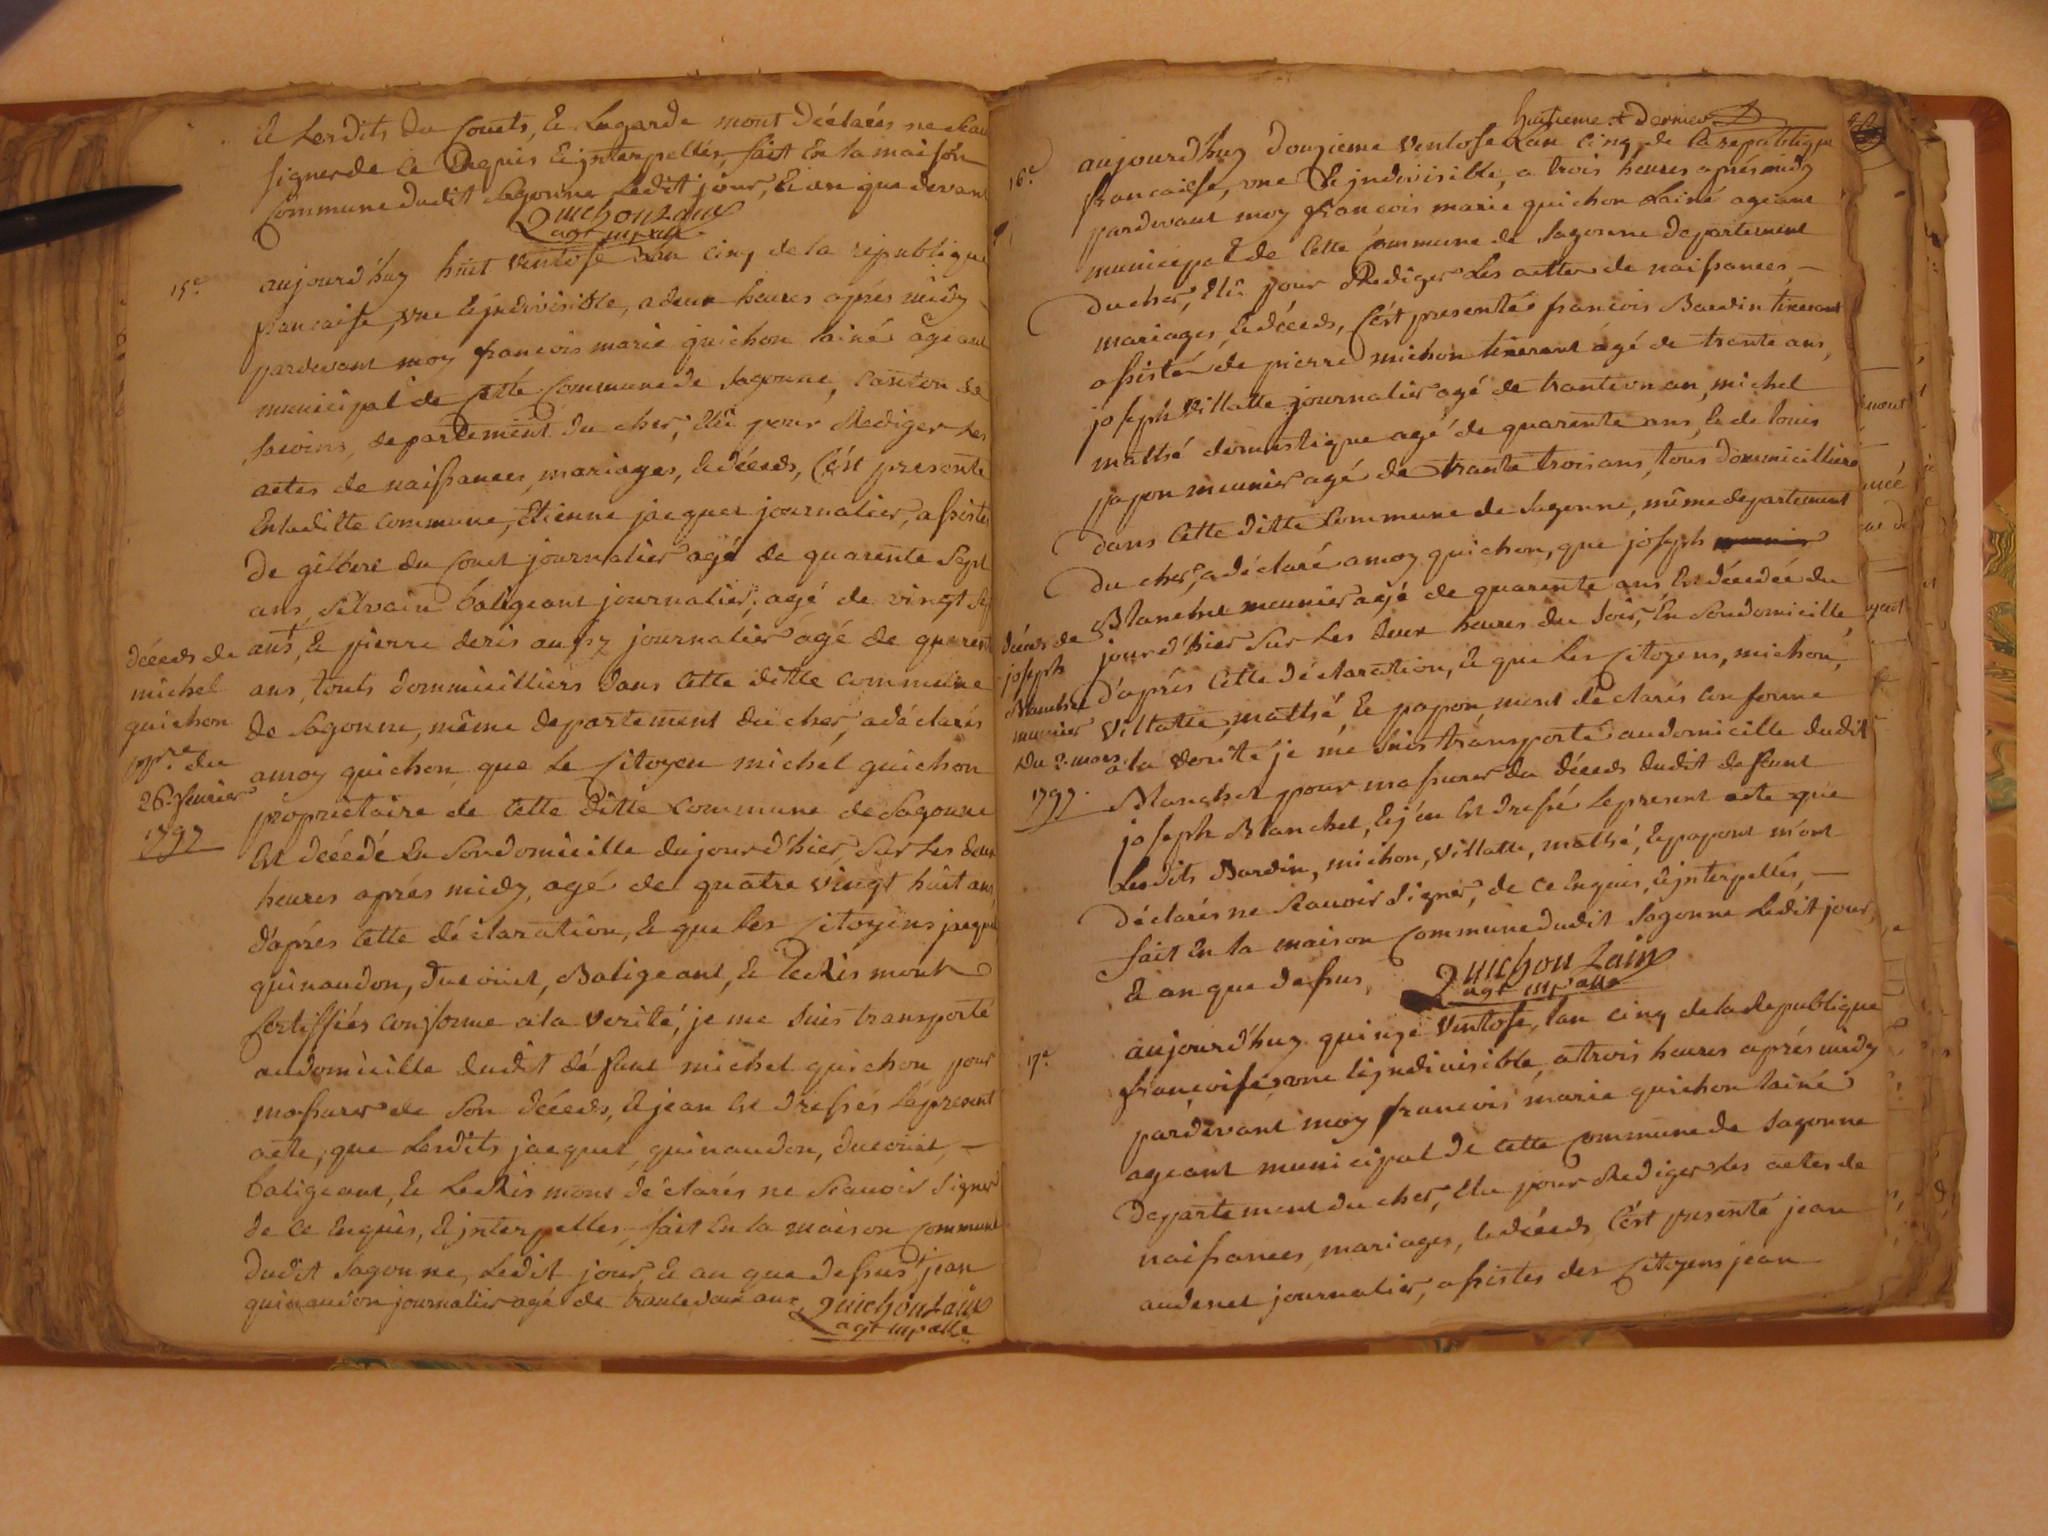 & Lesdits du Couets, & Lagarde mont déclarés ne sçau
signer de ce Enquis & jnterpellés, fait En la maison
Commune dudit Sagonne Ledit jour, & an que devant
Quichon Lainé
agt mpalle
15e aujourd'huy huit Ventose Lan cinq de la republique
francaise, vne & jndivisible, a deux heures aprés midy
pardevant moy francois marie quichon lainé ageant
municipal de Cette Commune de Sagonne, Canton de
departement du cher, Elû pour Rediger Les
actes de naissances, mariages, & décéds, C'est presenté
En laditte commune, Etienne jacquet journalier, assisté
de gilbert du Couet journalier agé de quarente Sept
ans, Silvain baligeant journalier, agé de vingt
ans, & pierre deris aussy journalier agé de quarent
ans, touts dommicilliers dans Cette ditte Commune
de Sagonne, même departement du cher, a déclarés
amoy quichon que Le Citoyen michel quichon
propriétaire de Cette ditte Commune de Sagonne
Est décédé En Son domicille du jour d'hier, Sur Les deux
heures aprés midy, agé de quatre vingt huit ans,
d'aprés Cette déclaration, & que Les Citoyens jacquet
quinaudon, ducouet, Baligeant, & Leris mont
Certiffiés conforme a la verité, je me Suis transporté
au domicille dudit défunt michel quichon pour
massurer de Son décéds, & jean Est dressés Lepresent
acte, que Lesdits jacquet, quinaudon, ducouet, —
baligeant, & Leris mont déclarés ne Scauoir Signer
de Ce Enquis, & jnterpelles, fait En la maison Commune
dudit Sagonne, Ledit jour, & an que dessus jean
quinaudon journalier agé de trante deux ans
Quichon Lainé
agt mpalle
décéds de
michel
quichon
ppre. du
26. feurier
1797
huitieme & dernier
16e aujourd'huy douzieme Ventose Lan Cinq de la republique
francaise, vne & jndivisible, a trois heures aprés midy
pardevant moy francois marie quichon Lainé ageant
municipal de Cette Commune de Sagonne departement
du cher, Elû pour Rediger Les acttes de naissances, —
mariages, & décéds, C'est presenté francois Bardin tixerant
assisté de pierre michon tixerant agé de trante ans,
joseph Villatte journalier agé de trante vn an, michel
mathé domestique agé de quarente ans, & de louis
papon meunier agé de trante trois ans, tous dommicilliers
dans Cette ditte Commune de Sagonne, même departement
du cher, a déclaré amoy quichon, que joseph
Blanchet meunier agé de quarente ans Est décédée du
jour d'hier Sur Les deux heures du Soir, En Son domicille
d'aprés Cette déclaration, & que Les Citoyens, michon,
Villatte, mathé, & papon mont déclarés Conforme
a la verité je me Suis transporté au domicille dudit
Blanchet pour massurer du décéds dudit defunt
joseph Blanchet, & j'en Est dressé Lepresent acte que
Lesdits Bardin, michon, Villatte, mathé, & papont m'ont
déclarés ne Scauoir Signer, de Ce Enquis, & jnterpellés, —
fait En la maison Commune dudit Sagonne Ledit jour,
& an que dessus,
Quichon Lainé
agt mpalle
décéds de
joseph
Blanchet
meunier
du 2. mars
1797.
17e. aujourd'huy quinze Ventose, lan cinq de la Republique
francoise, vne & jndivisible, a trois heures aprés midy
pardevant moy francois marie quichon lainé
ageant municipal de Cette Commune de Sagonne
departement du cher, Elu pour Rediger Les actes de
naissances, mariages, & décéds, C'est presenté jean
audenet journalier, assistes des Citoyens jean